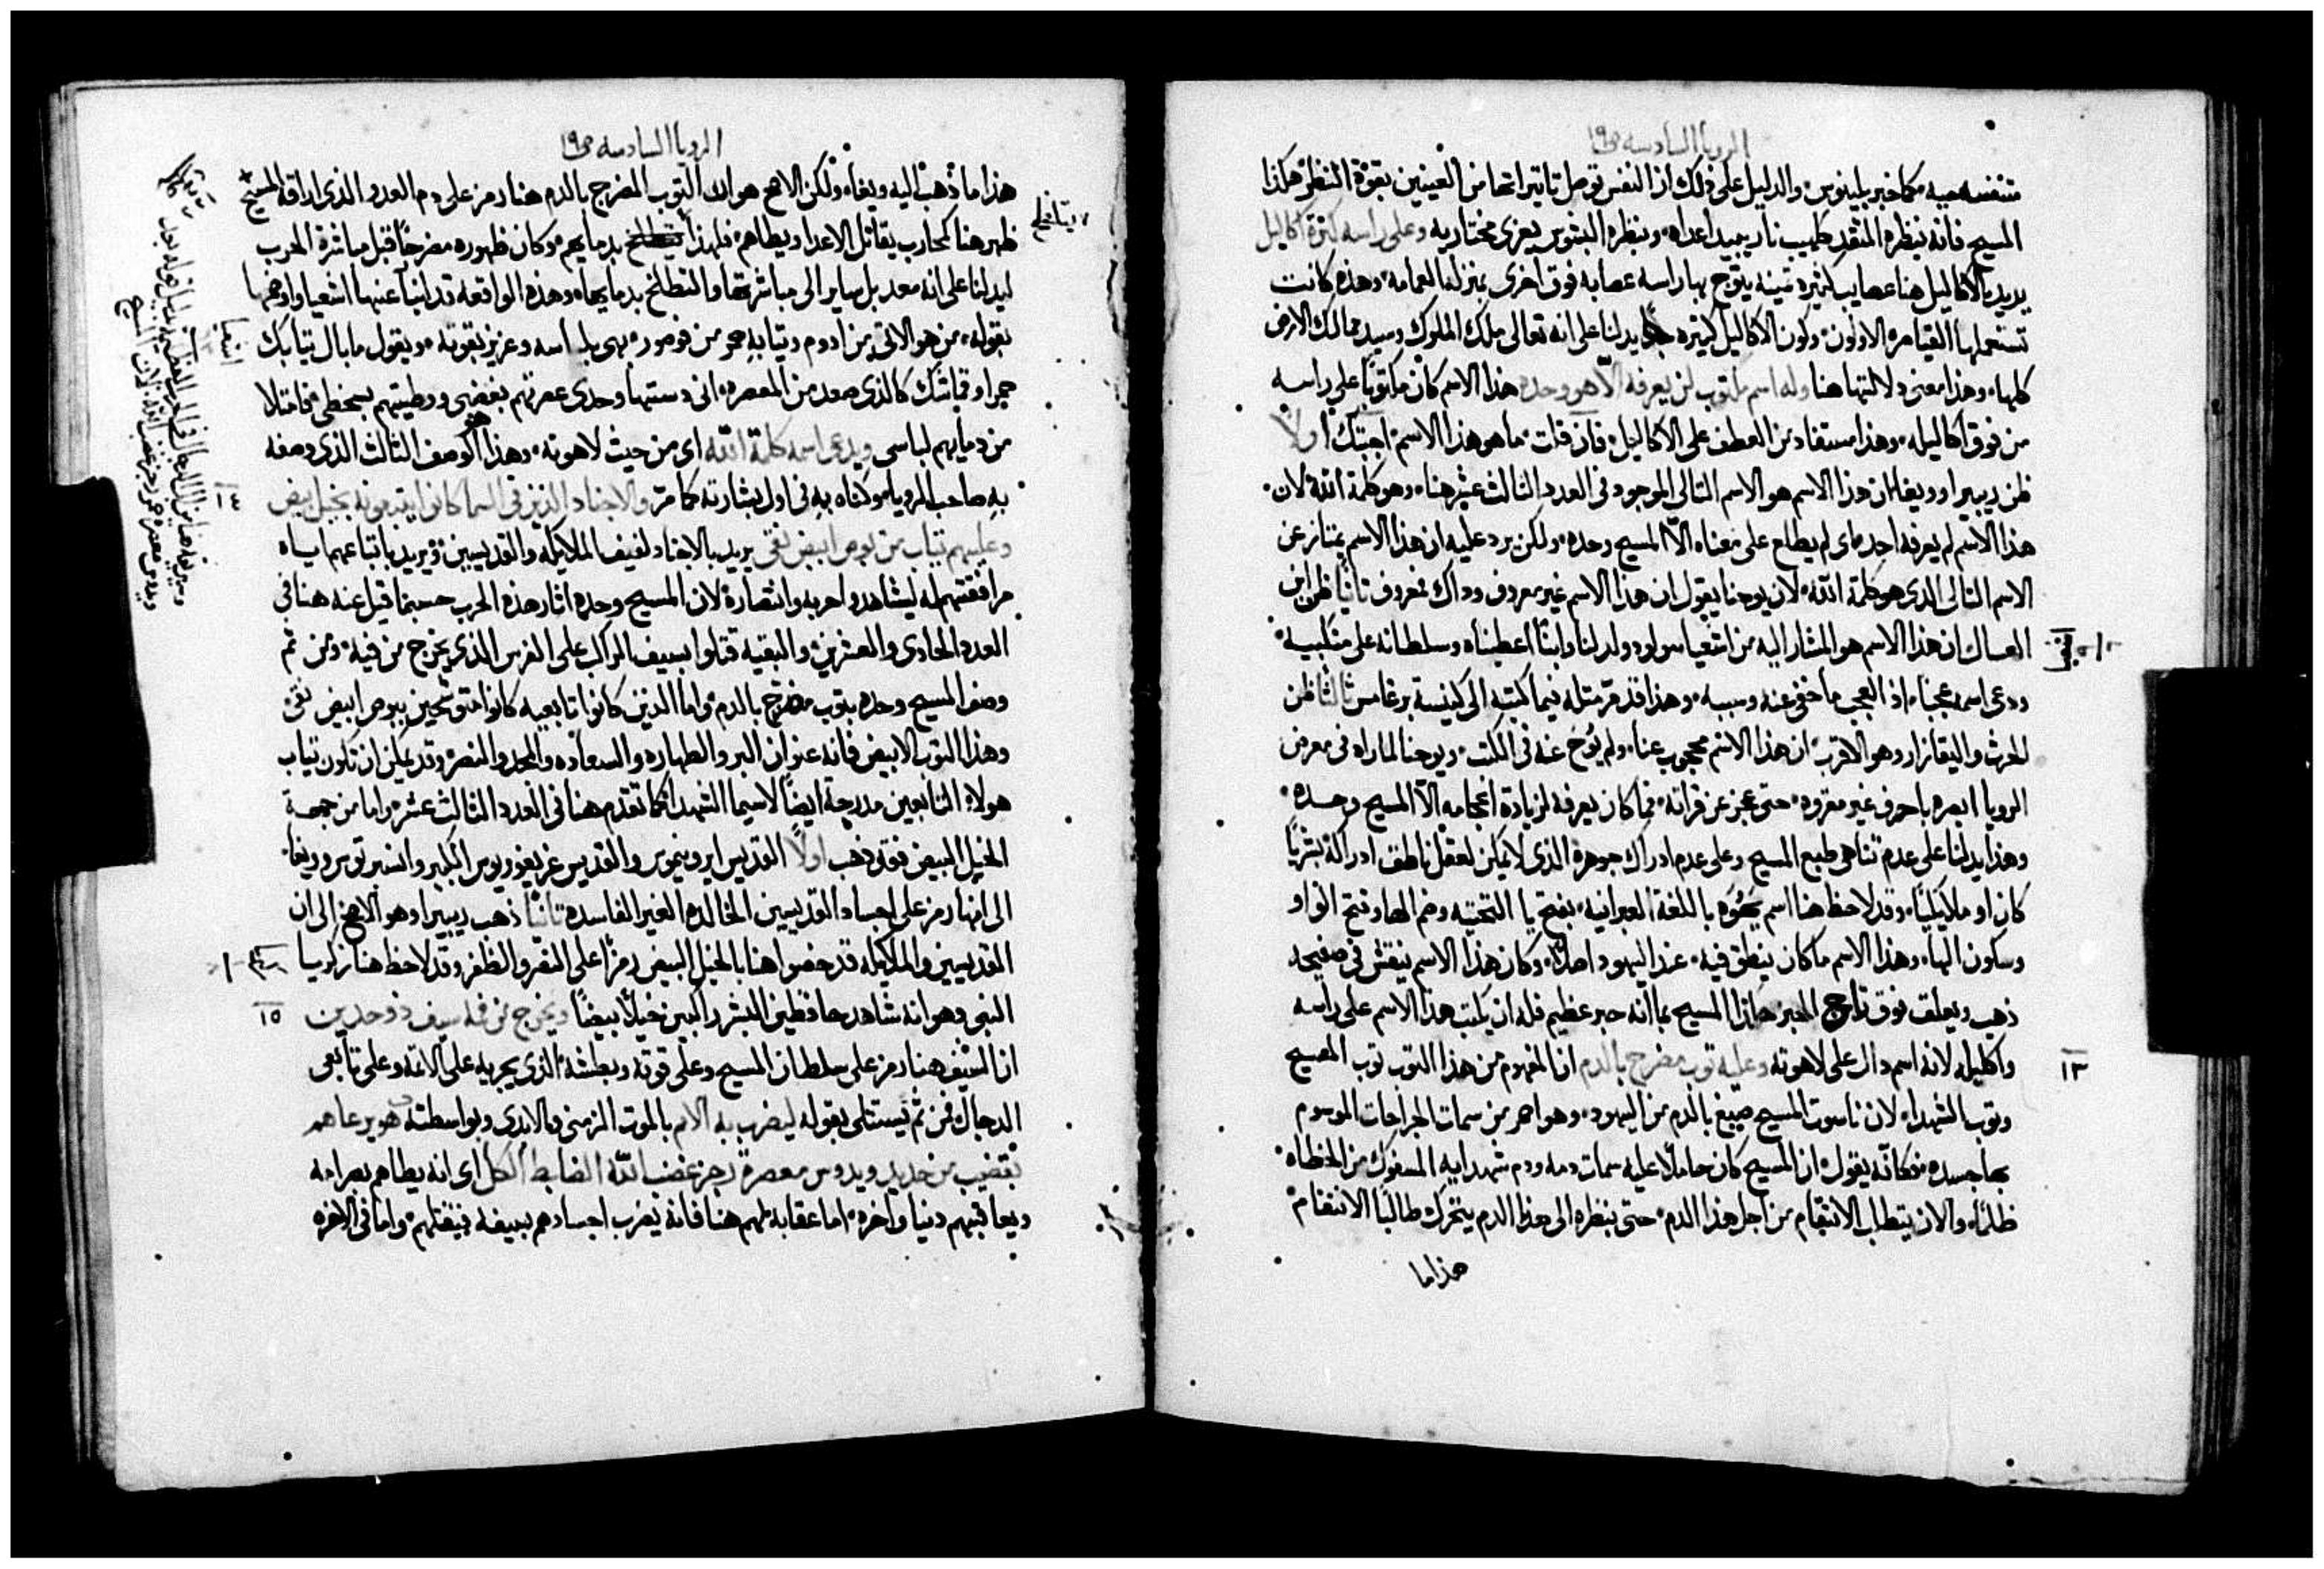 الرويا السادسه ص١٩
تنفسه عبيه كما خبر بلينوس والدليل على ذلك ان النفس توصل تاتيراتها من العينين بقوة النظر هكذا
المسيح فانه بنظره المتقد كلهيب نار يبيد اعداه وبنظره البشوس يعزى مختاريه وعلى راسه كثرة اكاليل
يريد بالاكاليل هنا عصايب كثيره تمينه يتوج بها راسه عصابه فوق اخرى بمنزلة العمامه وهذه كانت
تستعملها القياصره الاولون وكون الاكاليل كثيره جدا يدلنا على انه تعالى ملك الملوك وسيد ممالك الارض
كلها وهذا معنى دلالتها هنا وله اسم مكتوب لن يعرفه الا هو وحده هذا الاسم كان مكتوبا على راسه
من فوق اكاليله وهذا مستفاد من العطف على الاكاليل فان قلت ما هو هذا الاسم اجبتك اولا
ظن ريبيرا وويغا ان هذا الاسم هو الاسم التالى الموجود فى العدد الثالث عشر هنا وهو كلمة الله لان
هذا الاسم لم يعرفه احد اى لم يطلع على معناه الا المسيح وحده ولكن يرد عليه ان هذا الاسم يمتاز عن
الاسم التالى الذى هو كلمة الله لان يوحنا يقول ان هذا الاسم غير معروف وذاك معروف تانيا ظن ابن
العسال ان هذا الاسم هو المشار اليه من اشعيا مولود ولد لنا وابنا اعطيناه وسلطانه على منكبيه
ودعى اسمه عجبا اذ العجب ما خفى عنه وسببه وهذا قد مر مثله فيما كتبه الى كنيسة برغامس ثالثا ظن
الحرث واليقازار وهو الاقرب ان هذا الاسم محجوب عنا ولم يوح عنه فى الكتب ويوحنا لما راه فى معرض
الرويا ابصره باحرف غير مقروه حتى عجز عن قراته فما كان يعرفه لزيادة اعجامه الا المسيح وحده
وهذا يدلنا على عدم تناهى طبع المسيح وعلى عدم ادراك جوهره الذى لا يمكن لعقل ناطق ادراكه بشريا
كان او ملايكيا وقد لاحظ هنا اسم يهوه باللغة العبرانيه بفتح يا التحتيه وضم الها وفتح الواو
وسكون الها وهذا الاسم ما كان ينطق فيه عند اليهود اصلا وكان هذا الاسم ينقش فى صفيحة
ذهب ويعلق فوق تاج الحبر هكذا المسيح بما انه حبر عظيم فله ان يكتب هذا الاسم على راسه
١٣
واكليله لانه اسم دال على لاهوته وعليه توب مضرج بالدم ان المفهوم من هذا التوب توب المسيح
وتوب الشهدا لان ناسوت المسيح صبغ بالدم من اليهود وهو احمر من سمات الجراحات الموسوم
بها جسده فكانه يقول ان المسيح كان حاملا عليه سمات دمه ودم شهدايه المسفوك من الخطاه
ظلما والان يتطلب الانتقام من اجل هذا الدم حتى بنظره الى هذا الدم يتحرك طالبا الانتقام
هذا ما
الرويا السادسه ص١٩
هذا ما ذهب اليه ويغا ولكن الاصح هو ان التوب المضرج بالدم هنا رمز على دم العدو الذى اراقه المسيح
ظهر هنا كمحارب يقاتل الاعدا ويطاهم فلهذا بدمايهم وكان ظهوره مضرجا قبل مباشرة الحرب
ليدلنا على انه معد بل ساير الى مباشرتها والتطلخ بدمايها وهذه الواقعه قد انبا عنها اشعيا واوضحها
بقوله من هو الاتى من ادوم وتيابه حمر من فوصور بهى بلباسه وعزيز بقوته ويقول ما بال تيابك
اشعيا
حمرا وقماشك كالذى صعد من المعصره انى دستها وحدى عصرتهم بغضبى ووطيتهم بسخطى فامتلا
من دمايهم لباسى ويدعى اسمه كلمة الله اى من حيث لاهوته وهذا هو الوصف الثالث الذى وصفه
١٣
به صاحب الرويا وكناه به فى اول بشارته كما مر والاجناد الذين فى السما كانوا يتبعونه بخيل بيض
وعليهم تياب من بوص ابيض نقى يريد بالاجناد لفيف الملايكه والقديسين ويريد باتباعهم اياه
مرافقتهم له ليشاهدوا حربه وانتصاره لان المسيح وحده اثار هذه الحرب حسبما قيل عنه هنا فى
العدد الحادى والعشرين والبقيه قتلوا بسيف الراكب على الفرس الذى يخرج من فيه ومن ثم
وصف المسيح وحده بتوب مضرج بالدم واما الذين كانوا تابعيه كانوا متوشحين ببوص ابيض نقى
وهذا التوب الابيض فانه عنوان البر والطهاره والسعاده والمجد والنصر وقد يمكن ان تكون تياب
هولاء التابعين مدرجة ايضا لاسيما الشهدا كما تقدم هنا فى العدد الثالث عشر واما من جهة
الخيل البيض فقد ذهب اولا القديس ايرونيموس والقديس غريغوريوس الكبير وانسبرتوس وويغا
الى انها رمز على اجساد القديسين الخالده الغير الفاسده تانيا ذهب ريبيرا وهو الاصح الى ان
القديسين والملايكه قد حضروا هنا بالخيل البيض رمزا على النصر والظفر وقد لاحظ هنا زكريا
النبى وهو انه شاهد حافظين البشر راكبين خيلا بيضا ويخرج من فمه سيف ذو حدين
١٥
ان السيف هنا رمز على سلطان المسيح وعلى قوته وبطشه الذى يجريه على الاتمه وعلى تابعى
الدجال فمن ثم يستتلى بقوله ليضرب به الامم بالموت الزمنى والابدى وبواسطته هو يرعاهم
بقضيب من حديد ويدوس معصرة رجز غضب الله الضابط الكل اى انه يطاهم بصرامه
ويعاقبهم دنيا واخره اما عقابه لهم هنا فانه يضرب اجسادهم بسيفه فيقتلهم واما فى الاخره